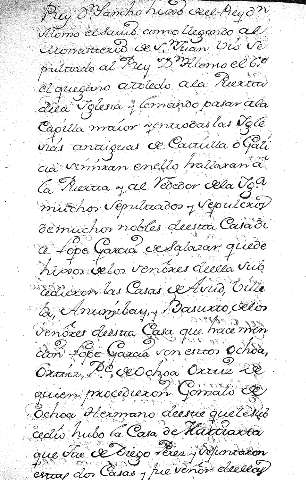 Rey Dn Sancho hixo del Rey Dn
Alonso el sauio, como llegando al
Monasterio de Sn Juan vio se
pultado al Rey Dn Alonso el 6º
el que gano a toledo a la Puerta
dela Iglesia y lo mando pasar ala
Capilla maior y en todas las Igle
sias antiguas de Castilla o Gali
cia si miran en ello hallaran a
la Puerta y al rededor de la Igª
muchos sepultados y sepulcros
de muchos nobles de esta Casa di
ce Lope Garcia de Salazar, que de
hixos de los señores de ella sub
cedieron las Casas de Auid, Tule
la, Anunzibay, y Basurto, de los
señores de esta Casa que hace men
cion Lope Garcia son estos Ochoa,
Ortiz, Po de Ochoa Ortiz de
quien procedieron Gonzalo de
Ochoa Hermano de este que le sub
cedio hubo la Casa de
que fue de Diego Perez y se juntaron
estas dos Casas y fue señor de ellas